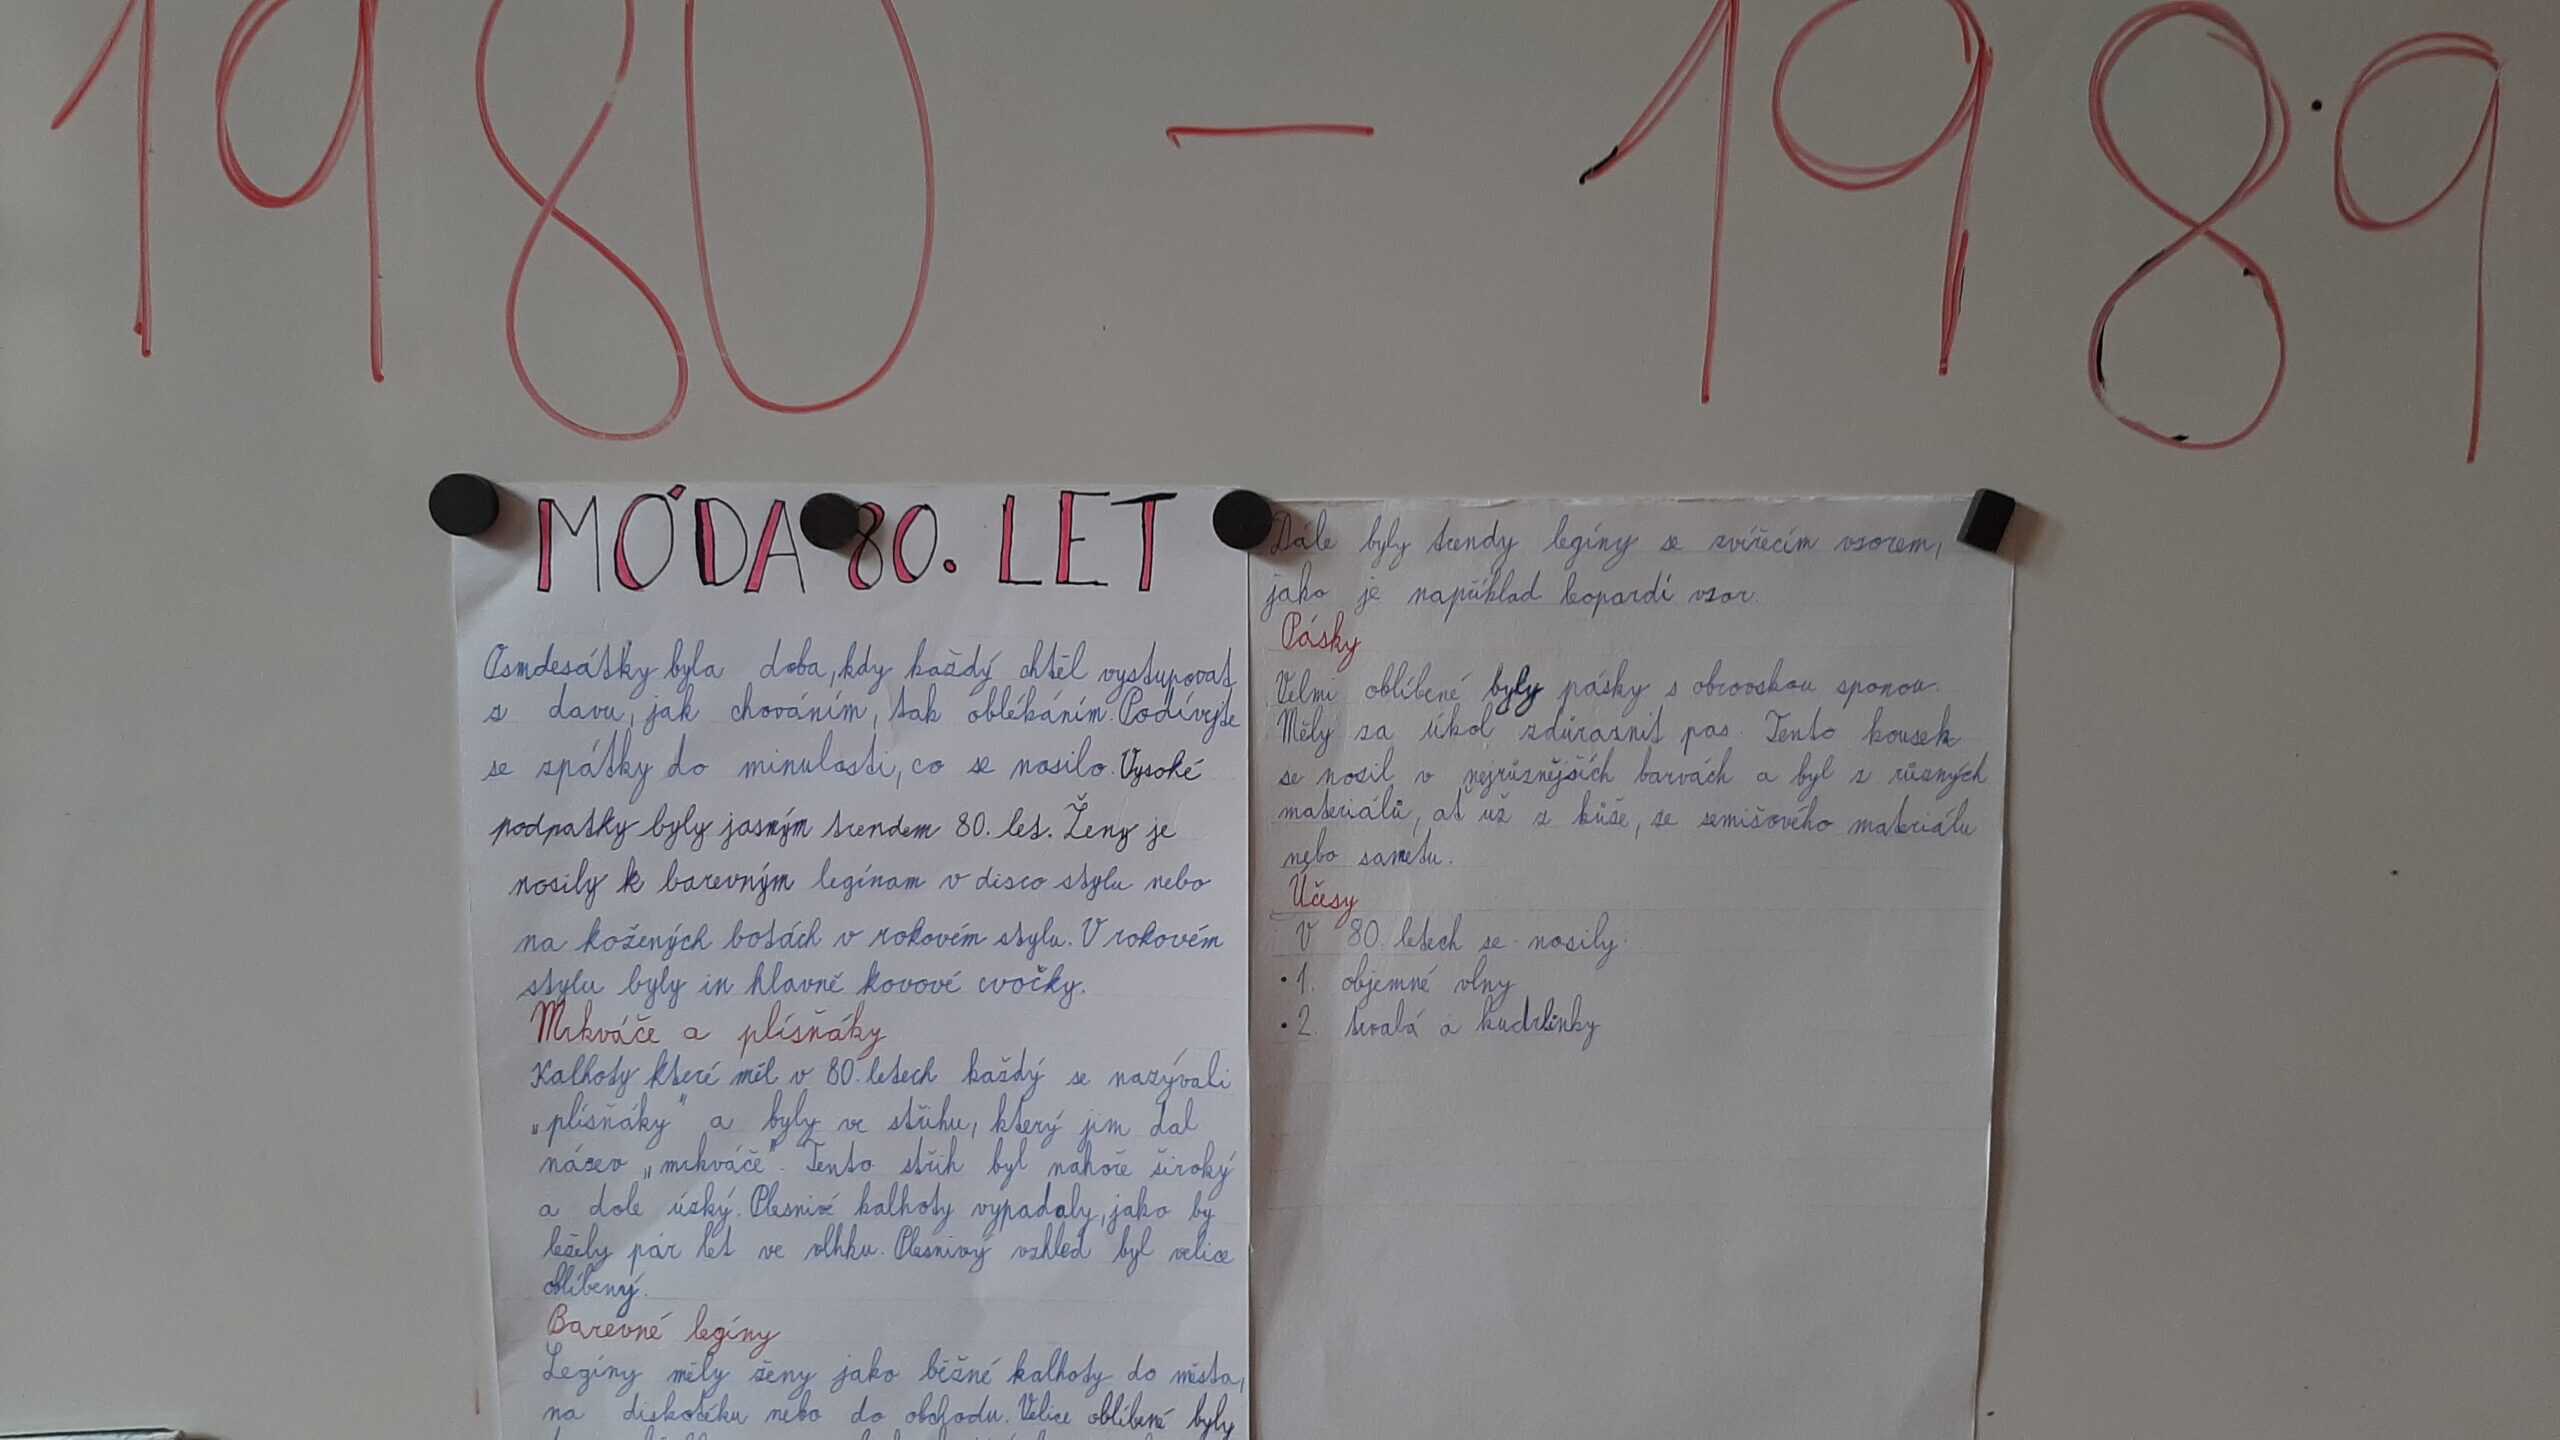 1980 - 1989
MÓDA 80. LET
Osmdesátky byla doba, kdy každý chtěl vystupovat
z davu, jak chováním, tak oblékáním. Podívejte
se zpátky do minulosti, co se nosilo. Vysoké
podpatky byly jasným trendem 80. let. Ženy je
nosily k barevným legínam v disco stylu nebo
na kožených botách v rokovém stylu. V rokovém
stylu byly in hlavně kovové cvočky.
Mrkváče a plísňáky
Kalhoty které měl v 80. letech každý se nazývali
„plísňáky" a byly ve střihu, který jim dal
název „mrkváče". Tento střih byl nahoře široký
a dole úzký. Plesnivé kalhoty vypadaly, jako by
ležely pár let ve vlhku. Plesnivý vzhled byl velice
oblíbený.
Barevné legíny
Legíny měly ženy jako běžné kalhoty do města,
na diskotéku nebo do obchodu. Velice oblíbené byly
Dále byly trendy legíny se zvířecím vzorem,
jako je například leopardí vzor.
Pásky
Velmi oblíbené byly pásky s obrovskou sponou.
Měly za úkol zdůraznit pas. Tento kousek
se nosil v nejrůznějších barvách a byl z různých
materiálů, ať už z kůže, ze semišového materiálu
nebo sametu.
Účesy
V 80. letech se nosily:
• 1. objemné vlny
• 2. trvalá a kudrlinky